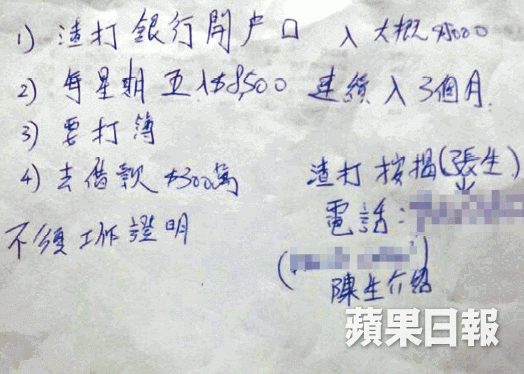 1) 渣打銀行開户口 入大概$5000
2) 每星期五入$8,500 連續入3個月.
3) 要打簿
4) 去借款$300萬
不須工作證明
渣打按揭(張生)
電話:
(
陳生介紹
蘋果日報